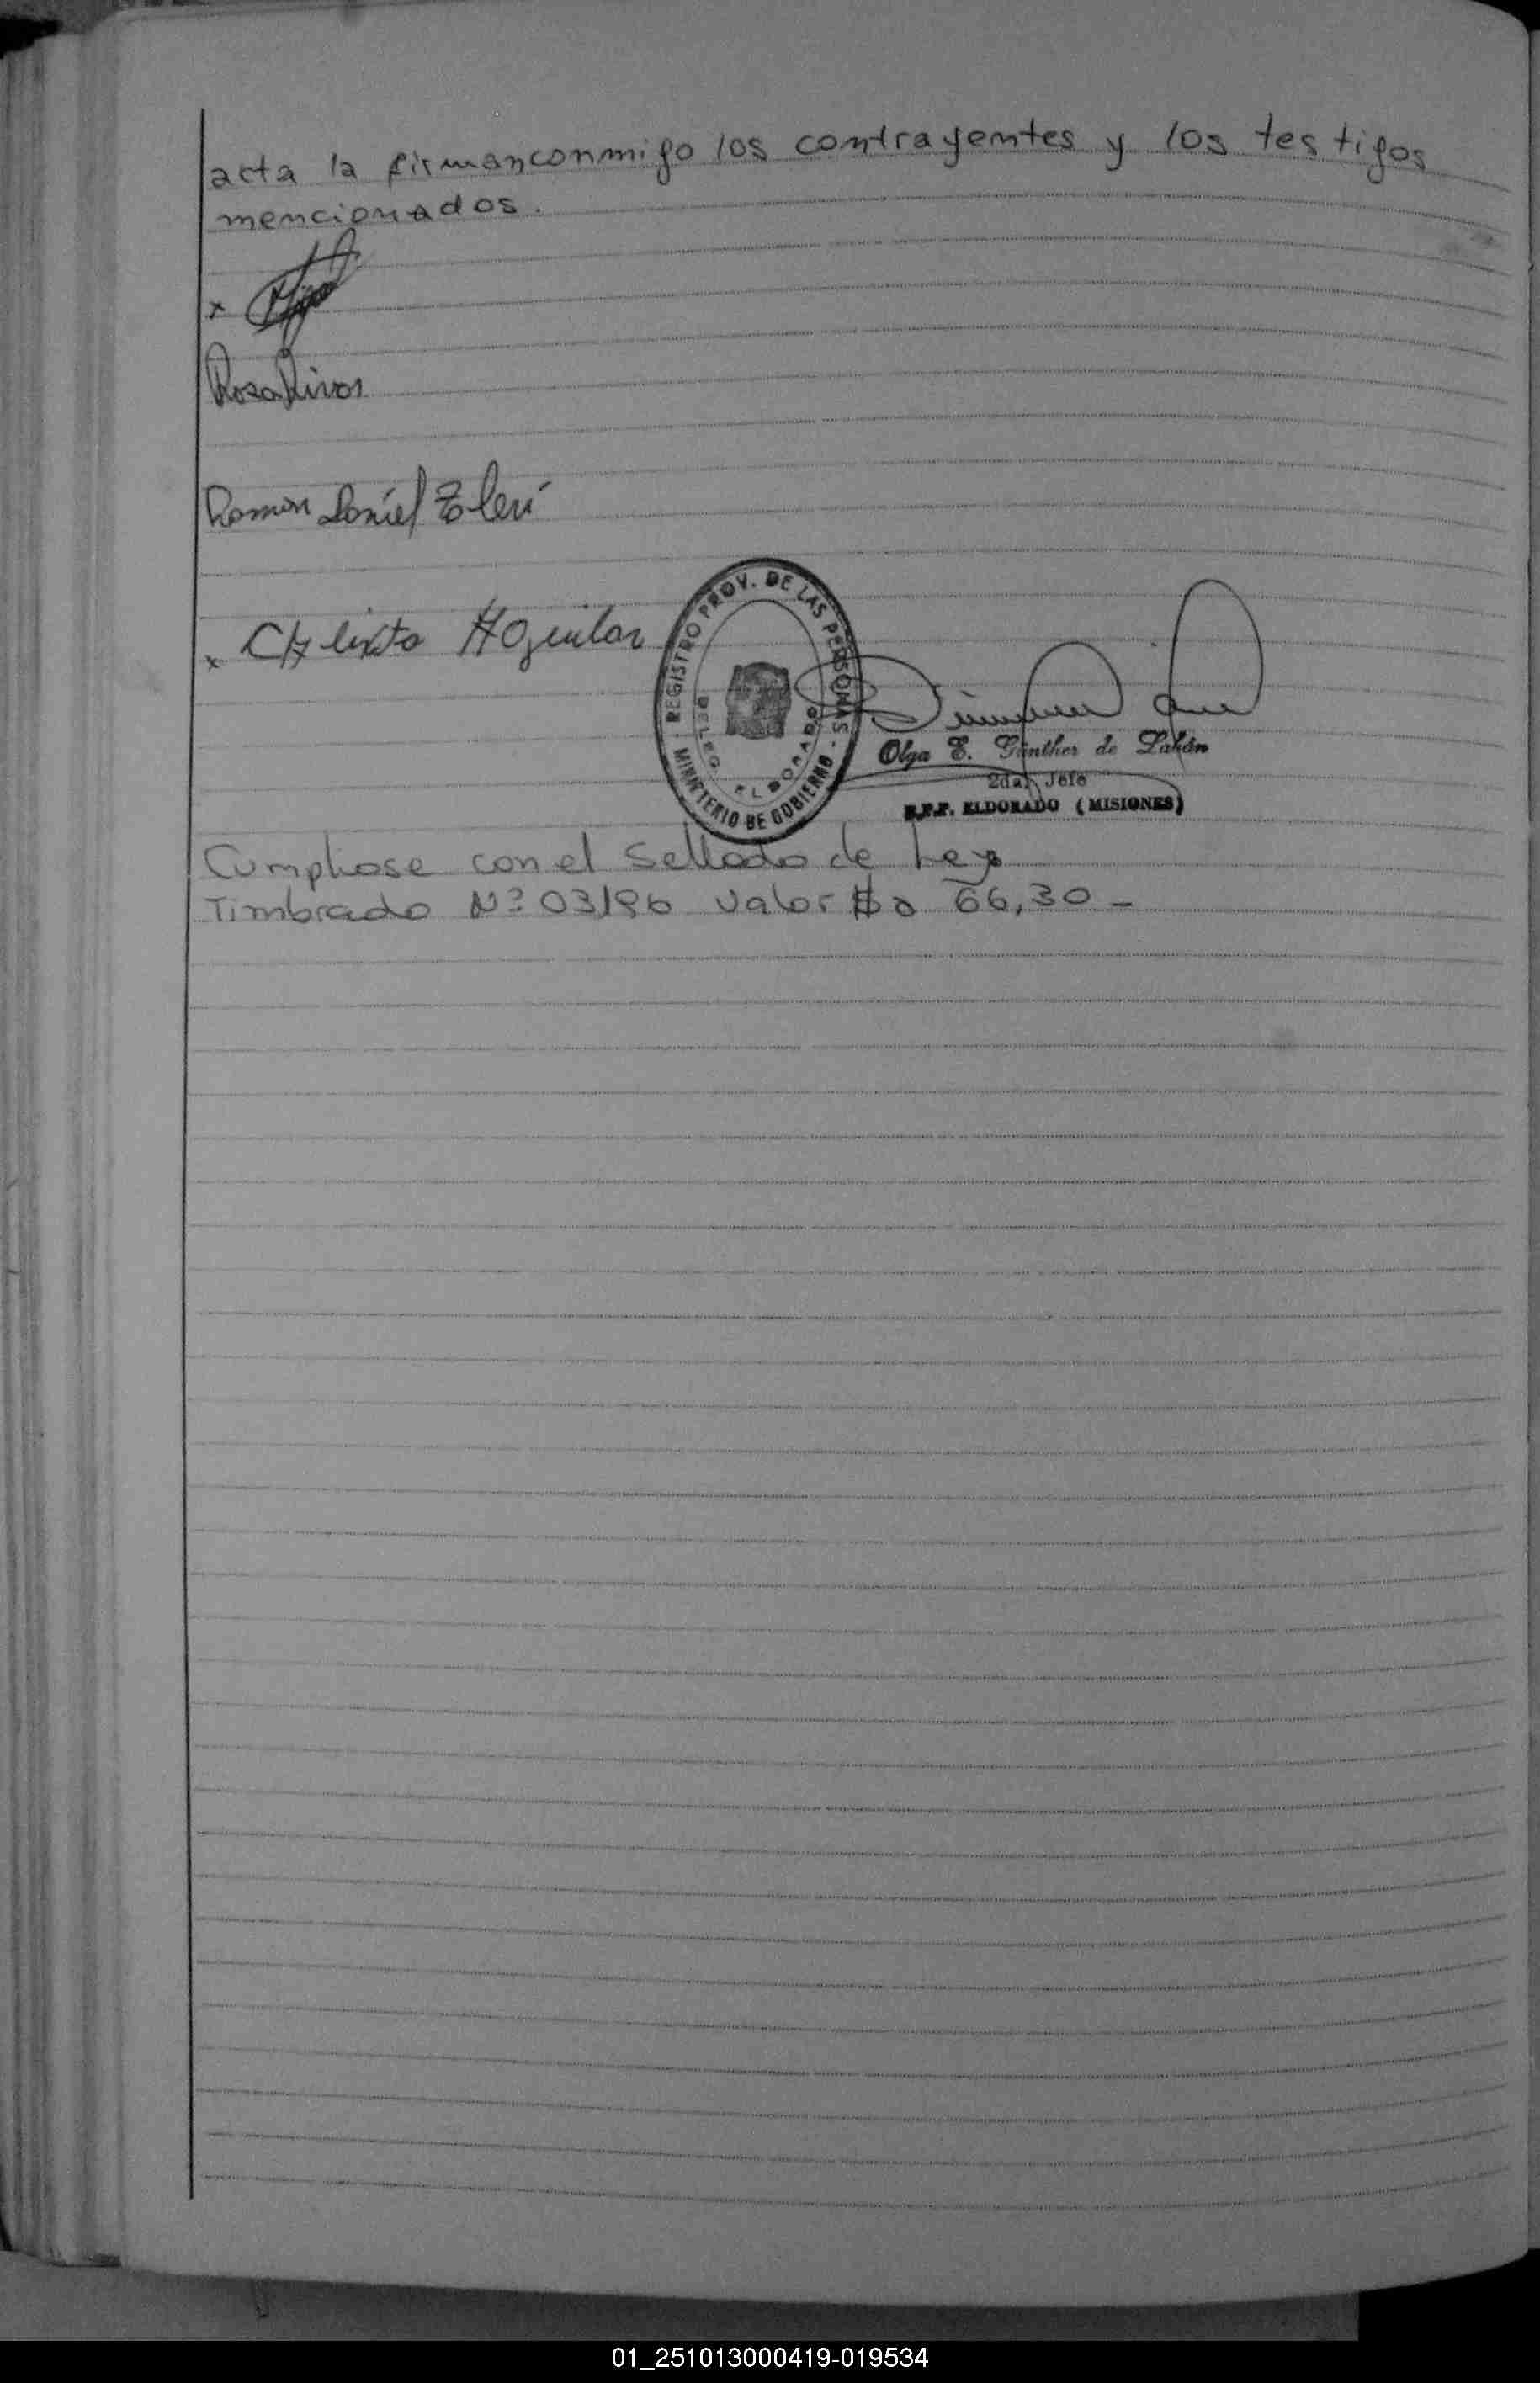 acta la firmanconmigo los contrayentes y los testigos
mencionados.
x
Rosa Rivas
Ramon Daniel
x Calixto Aguilar
REGISTRO PROV. DE LAS PERSONAS - MINISTERIO DE GOBIERNO -
DELEG. ELDORADO
Olga E. Günther de
2da. Jefe
R.P.P. ELDORADO (MISIONES)
Cumpliose con el Sellado de Ley
Timbrado Nº 03196 Valor $a 66,30 -
01_251013000419-019534